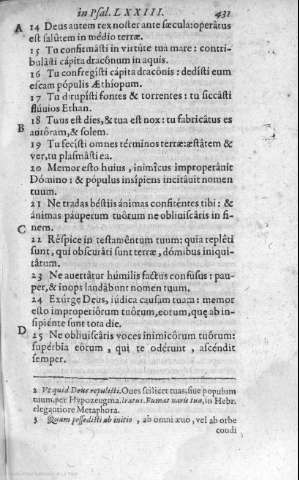 in Psal. LXXIII. 431
A 14 Deus autem rex noster ante sæcula: operâtus
est salútem in médio terræ.
15 Tu confirmásti in virtúte tua mare: contri-
bulásti cápita dracónum in aquis.
16 Tu confregísti cápita dracónis: dedísti eum
escam pópulis Æthiopum.
17 Tu dirupísti fontes & torrentes: tu siccásti
flúvios Ethan.
18 Tuus est dies, & tua est nox: tu fabricátus es
B auróram, & solem.
19 Tu fecísti omnes términos terræ: æstâtem &
ver, tu plasmásti ea.
20 Memor esto huius, inimîcus improperâuit
Dómino: & pópulus insípiens incitâuit nomen
tuum.
21 Ne tradas béstiis ánimas confiténtes tibi: &
ánimas páuperum tuôrum ne obliuiscâris in fi-
nem.
C
22 Réspice in testaméntum tuum: quia replêti
sunt, qui obscurâti sunt terræ, dómibus iniqui-
tâtum.
23 Ne auertâtur húmilis factus confusus: pau-
per, & inops laudâbunt nomen tuum.
24 Exúrge Deus, iúdica causam tuam: memor
esto improperiôrum tuôrum, eorum, quę ab in-
sipiénte sunt tota die.
D 25 Ne obliuiscâris voces inimicôrum tuôrum:
supérbia eôrum, qui te odérunt, ascéndit
semper.
2 Vt quid Deus repulisti. Oues scilicet tuas, siue populum
tuum, per Hypozeugma. iratus. Fumat naris tua, in Hebr.
elegantiore Metaphora.
3 Quam possedisti ab initio, ab omni æuo, vel ab orbe
condi